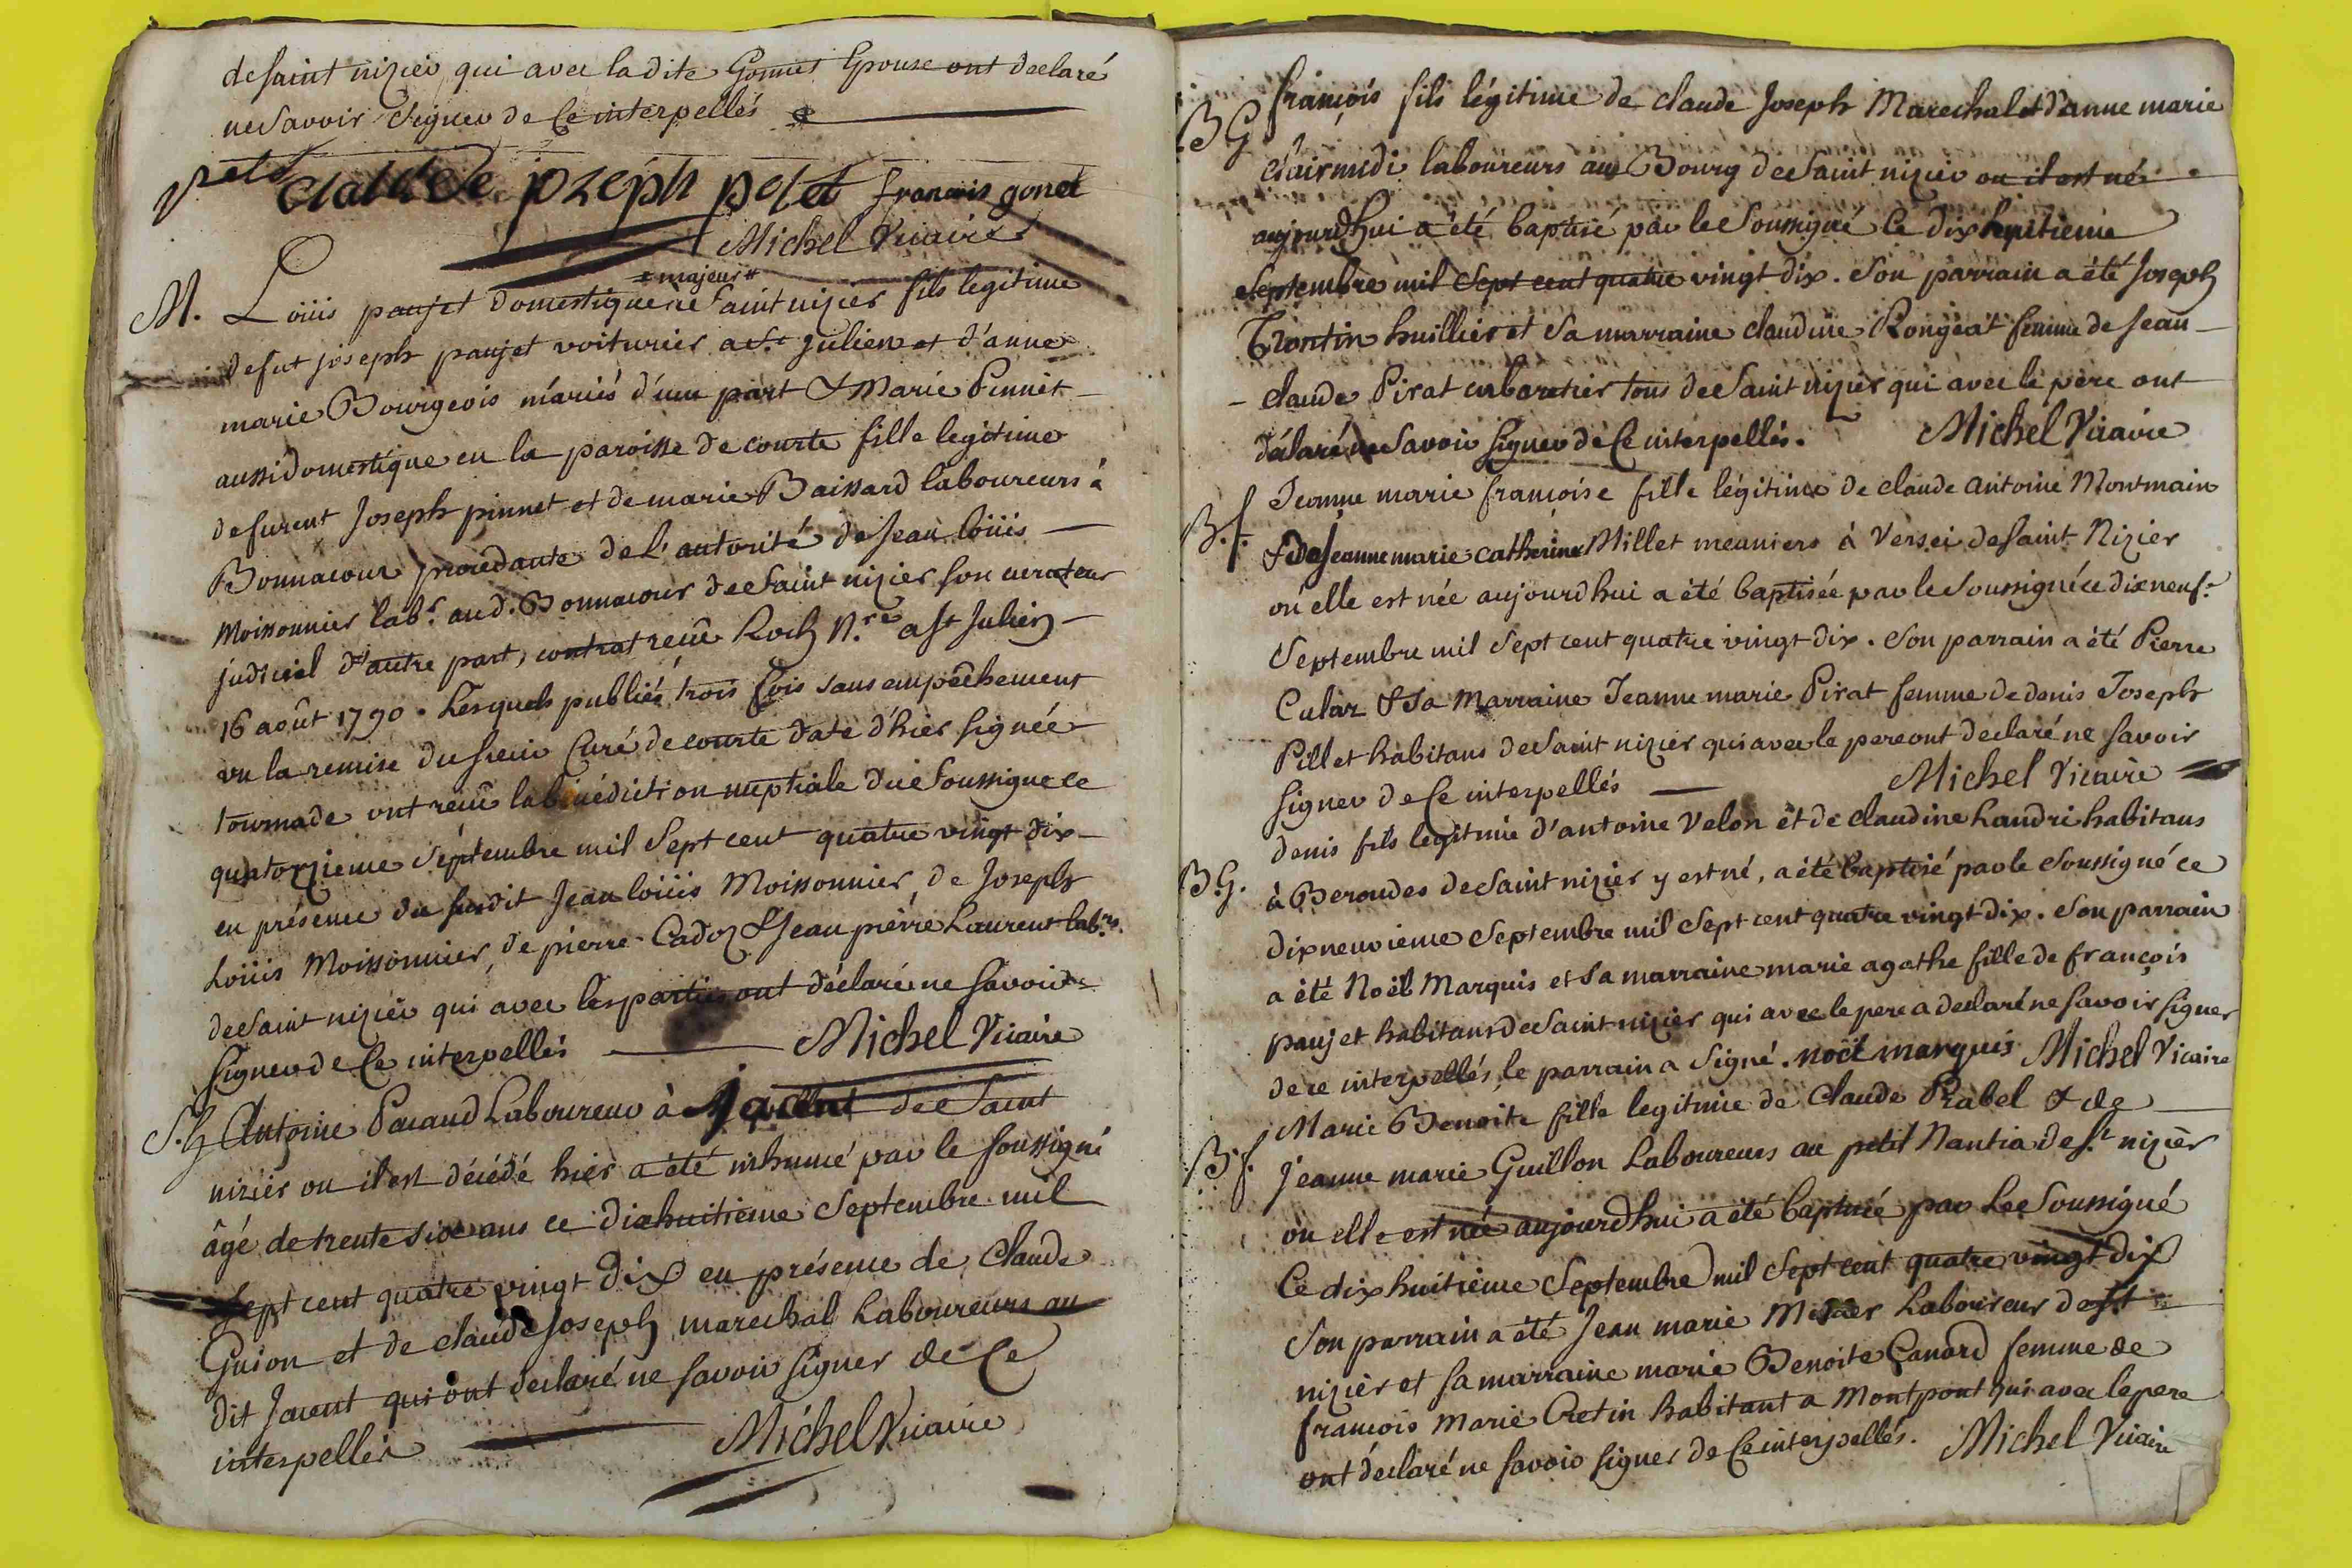 de saint nizier qui avec la dite Gonnet Epouse ont declaré
ne Savoir Signer de Ce interpellés
claude jozeph polet francois gonet
Michel Vicaire
* majeur *
M. Loüis paujet domestique a Saint nizier fils legitime
de fut joseph paujet voiturier a St. julien et d'anne
marie Bourgeois mariés d'une part & Marie Pinnet
aussi domestique en la paroisse de courte fille legitime
de furent Joseph pinnet et de marie Baissard laboureurs à
Bonnacour procedante de L'autorité de Jean loüis
Moissonnier labr. aud. Bonnacour de Saint nizier son curateur
judiciel d'autre part, contrat reçu Roch Nre. a St Julien
16 août 1790. Lesquels publiés trois fois sans empêchement
vu la remise du Sieur Curé de courte date d'hier signée
tournade ont reçu la bénédiction nuptiale du Soussigné ce
quatorzieme Séptembre mil Sept cent quatre vingt dix
en présence du susdit Jean loüis Moissonnier, de Joseph
Loüis Moissonnier, de pierre Cadoz & Jean pierre Laurent labrs.
de Saint nizier qui avec les parties ont déclaré ne Savoir
Signer de Ce interpellés Michel Vicaire
S. G Antoine Pacaud Laboureur à Jacent de Saint
nizier ou il est décédé hier a été inhumé par le soussigné
âgé de trente six ans ce dixhuitieme Septembre mil
Sept cent quatre vingt Dix en présence de Claude
Guion et de claude Joseph marechal Laboureurs au
dit Jacent qui ont declaré ne savoir signer de Ce
interpellés Michel Vicaire
B G françois fils légitime de claude Joseph Marechal et d'anne marie
clairmidi laboureurs au Bourg de Saint nizier ou il est né
aujourdhui a été baptisé par le Soussigné Ce dix huitieme
Septembre mil Sept cent quatre vingt dix. Son parrain a été Joseph
Trontin huillier et Sa marraine claudine Rongeat femme de Jean
claude Pirat cabaretier tous de Saint nizier qui avec le père ont
déclaré ne Savoir Signer de Ce interpellés. Michel Vicaire
B. f. Jeanne marie françoise fille légitime de claude antoine Montmain
& de Jeanne marie catherine Millet meuniers à Versei de Saint Nizier
où elle est née aujourdhui a été baptisée par le Soussigné ce dix neuf.e
Septembre mil Sept cent quatre vingt dix. Son parrain a été Pierre
Culaz & Sa Marraine Jeanne marie Pirat femme de denis Joseph
Pillet habitans de Saint nizier qui avec le pere ont declaré ne savoir
signer de Ce interpellés Michel Vicaire
B G. denis fils legitime d'antoine Velon et de claudine Landri habitans
à Beroudes de Saint nizier y est né, a été baptisé par le Soussigné ce
dixneuvieme Septembre mil Sept cent quatre vingt dix. Son parrain
a été Noël Marquis et Sa marraine marie agathe fille de françois
paujet habitans de Saint nizier qui avec le pere a declaré ne savoir signer
de ce interpellés, le parrain a Signé. noël marquis Michel Vicaire
B. f. Marie Benoite fille legitime de Claude Rabel & de
Jeanne marie Guillon Laboureurs au petit Nantia de St. nizier
où elle est née aujourdhui a été baptisée par Le Soussigné
Ce dix huitième Septembre mil Sept cent quatre vingt dix
Son parrain a été Jean marie Laboureur de St
nizier et sa marraine marie Benoite Canard femme de
françois Marie Cretin habitant a Montpont qui avec le pere
ont déclaré ne savoir signer de Ce interpellés. Michel Vicaire